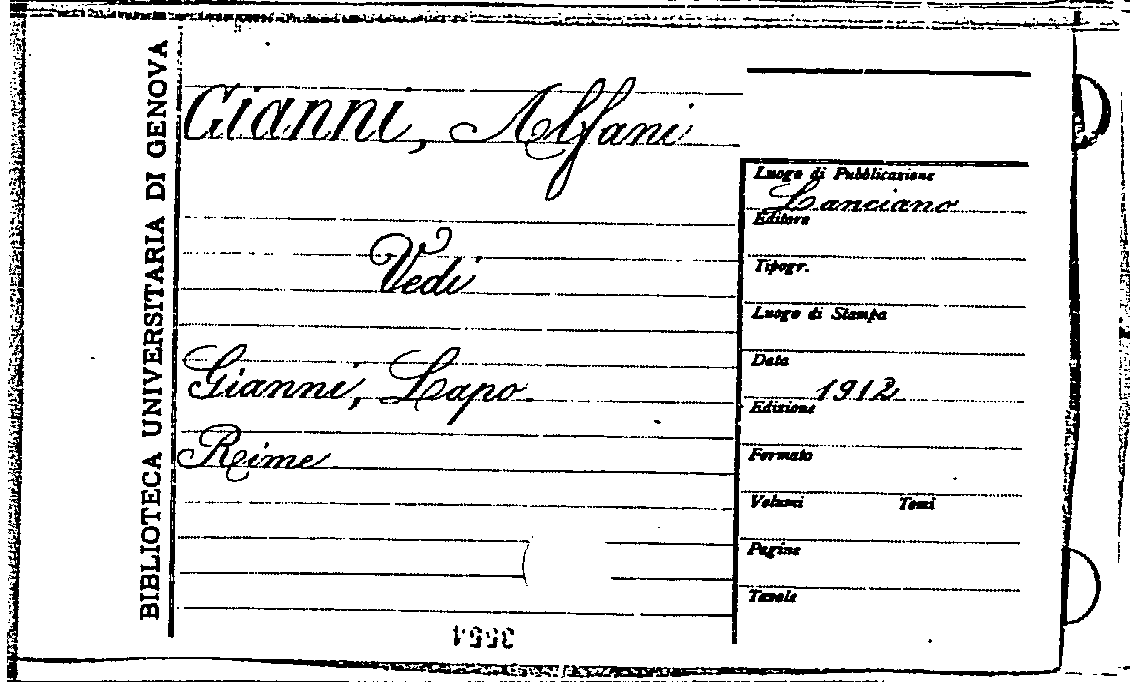 BIBLIOTECA UNIVERSITARIA DI GENOVA
Gianni, Alfani
Vedi
Gianni, Lapo.
Rime
Luogo di Pubblicazione
Lanciano
Editore
Tipogr.
Luogo di Stampa
Data
1912
Edizione
Formato
Volumi Tomi
Pagine
Tavole